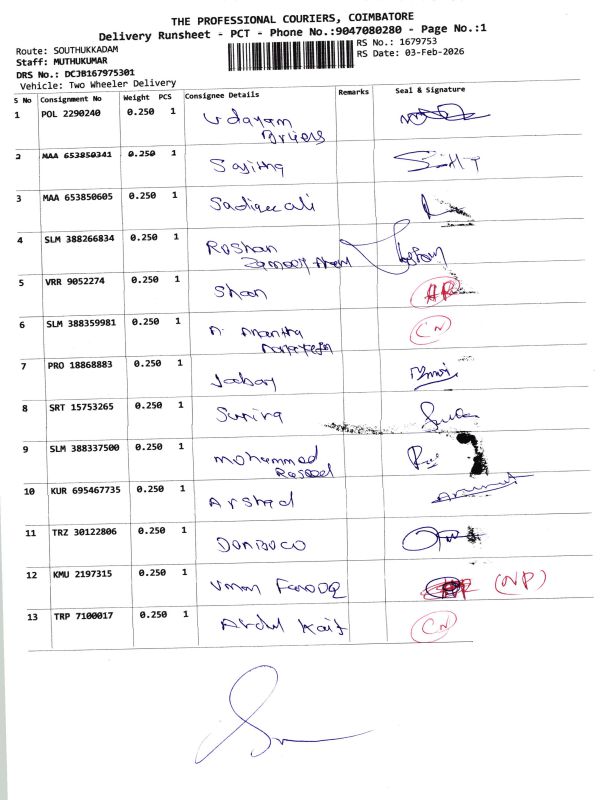 THE PROFESSIONAL COURIERS, COIMBATORE
Delivery Runsheet - PCT - Phone No.:9047080280 - Page No.:1
Route: SOUTHUKKADAM
RS No.: 1679753
Staff: MUTHUKUMAR
RS Date: 03-Feb-2026
DRS No.: DCJB167975301
Vehicle: Two Wheeler Delivery
S No Consignment No Weight PCS Consignee Details Remarks Seal & Signature
1 POL 2290240 0.250 1 Udayam
2 MAA 653850341 0.250 1 Sajitha
3 MAA 653850605 0.250 1 Sadiq ali
4 SLM 388266834 0.250 1 Roshan
5 VRR 9052274 0.250 1 Shan
6 SLM 388359981 0.250 1 Anantha CN
7 PRO 18868883 0.250 1
8 SRT 15753265 0.250 1
9 SLM 388337500 0.250 1 mohammed
Raseed
10 KUR 695467735 0.250 1 Arshad
11 TRZ 30122806 0.250 1
12 KMU 2197315 0.250 1 Umar Farooq (NP)
13 TRP 7100017 0.250 1 Abdul Kaif CN